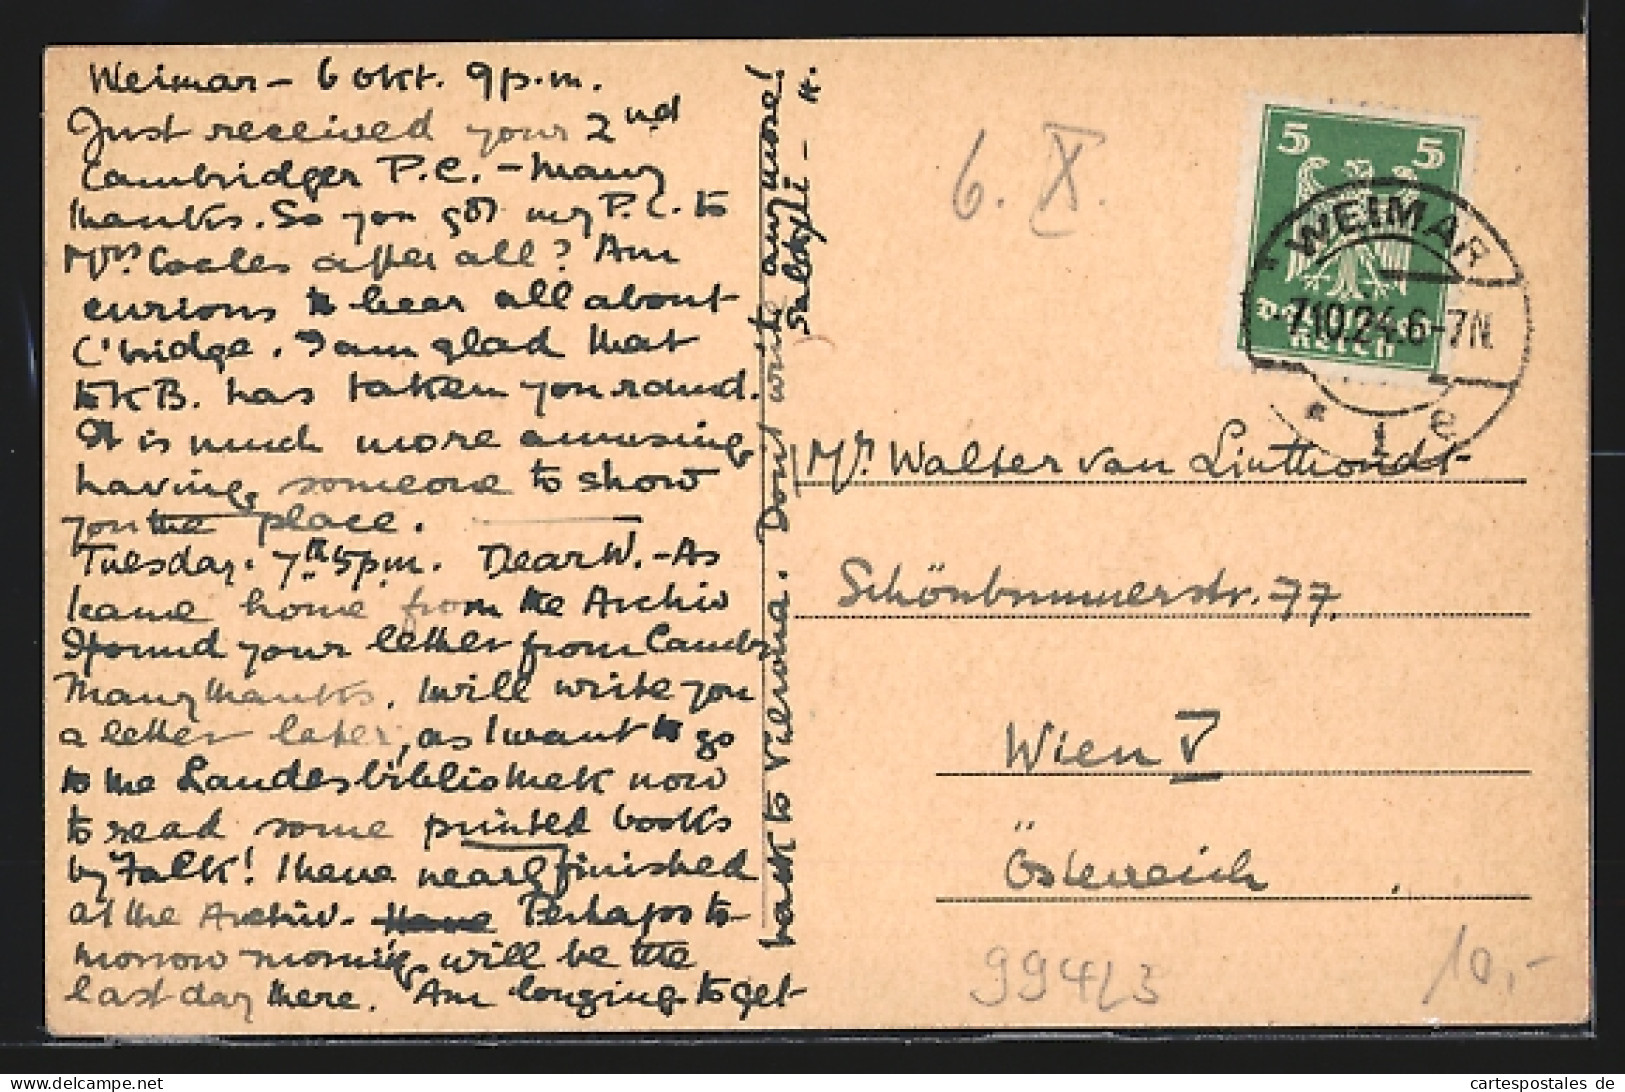 Weimar – 6 Okt. 9 p.m.
Just received your 2nd
Cambridger P.C. – Many
thanks. So you got my P.C. to
Mrs. after all? Am
curious to hear all about
C'bridge. I am glad that
KB. has taken you round.
It is much more amusing
having someone to show
you the place.
Tuesday. 7th 5 p.m. Dear W. – As
I came home from the Archiv
I found your letter from Cambr.
Many thanks. I will write you
a letter later, as I want to go
to the Landesbibliothek now
to read some printed books
by Falk! I have nearly finished
at the Archiv. Have Perhaps to-
morrow morning will be the
last day there. Am longing to get
back to Vienna. Don't write any more!
– H.
6. X.
5 5
Deutsches
Reich
WEIMAR
-7.10.24.6-7N.
* 1 e
Mr. Walter van
Schönbrunnerstr. 77.
Wien V
Österreich
994/3
10,-
cartespostales de